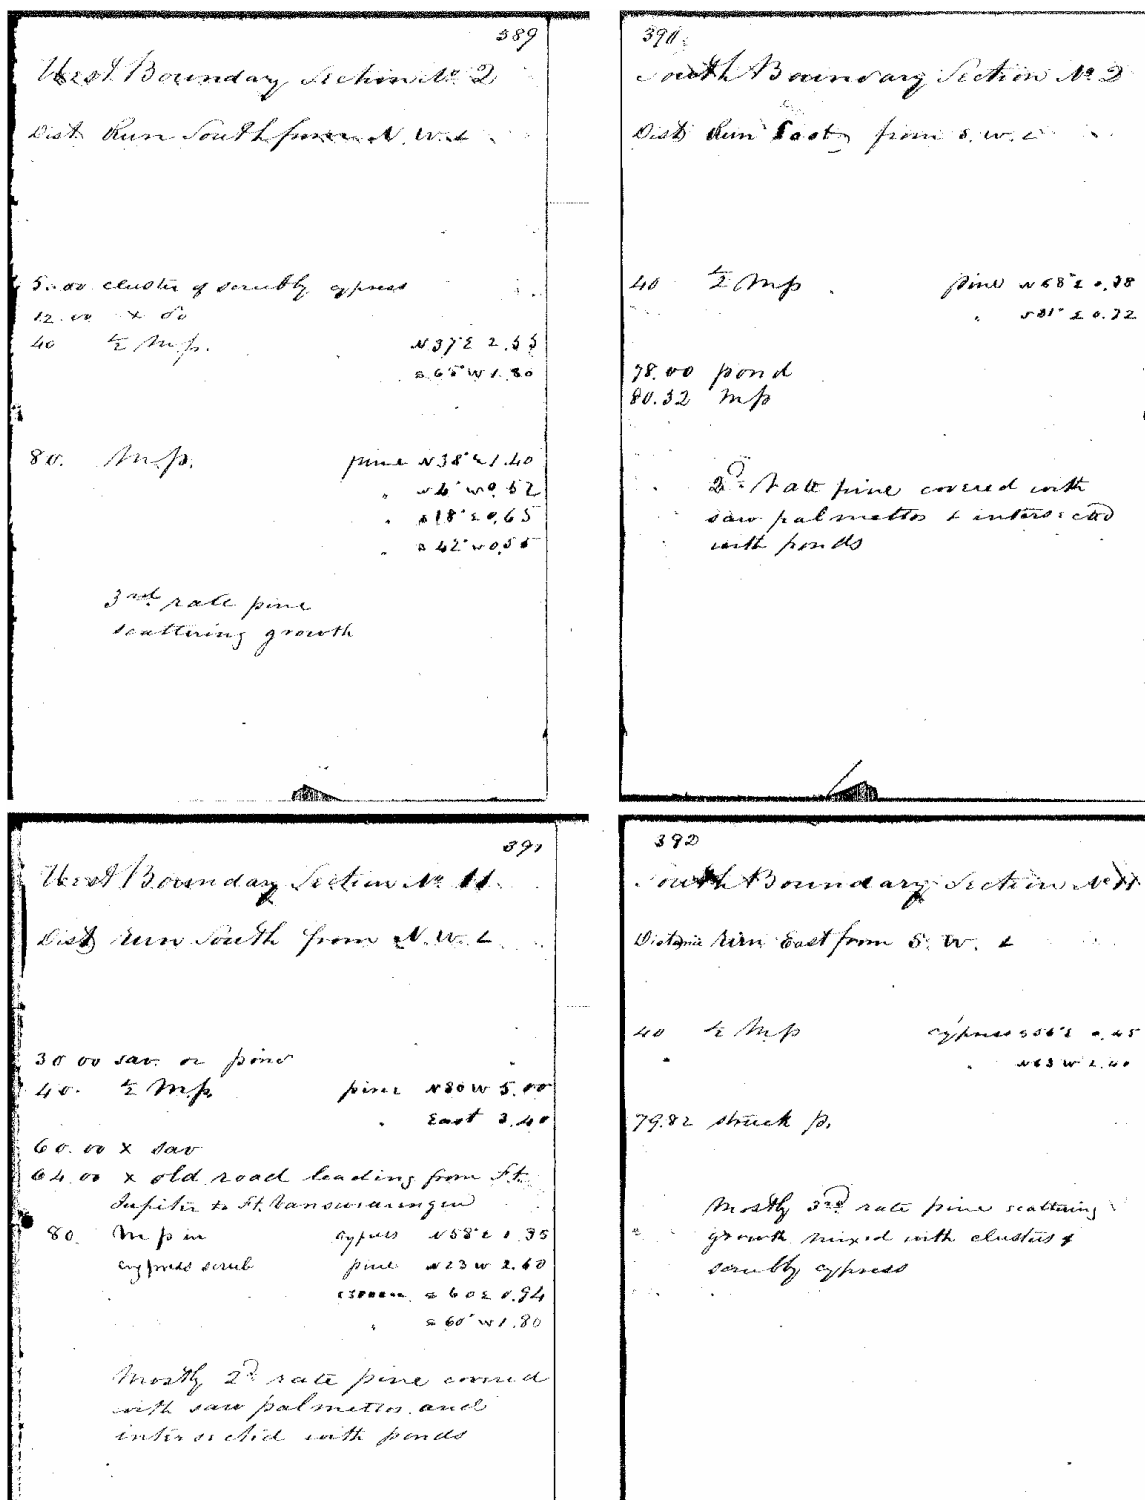 389
West Boundary Section No 2
Dist Run South from N. W. c
5.00 cluster of scrubby cypress
12.00 x do
40 ½ M.p. N37°E 2.55
S 65° W 1.80
80. M.p. pine N38°E 1.40
" N 4° W 0.52
" S 18° E 0.65
" S 42° W 0.55
3rd rate pine
scattering growth
390
South Boundary Section No 2
Dist Run East from S. W. c
40 ½ Mp pine N68°E 0.38
" S31°E 0.72
78.00 pond
80.32 Mp
2d rate pine covered with
saw palmettos & intersected
with ponds
391
West Boundary Section No 11
Dist Run South from N. W. c
30 00 sav. or pine
40. ½ M.p. pine N80W 5.00
" East 3.40
60.00 x sav
64.00 x old road leading from Ft.
Jupiter to Ft. Vanswearingen
80. M p in cypress N58°E 1.35
cypress scrub pine N23W 2.60
S 60 E 0.94
" S 60° W 1.80
Mostly 2d rate pine covered
with saw palmettos and
intersected with ponds
392
South Boundary Section No 11
Distance Run East from S. W. c
40 ½ Mp cypress S56°E 0.45
" N63 W 2.40
79.82 struck p.
Mostly 3rd rate pine scattering
growth mixed with clusters of
scrubby cypress